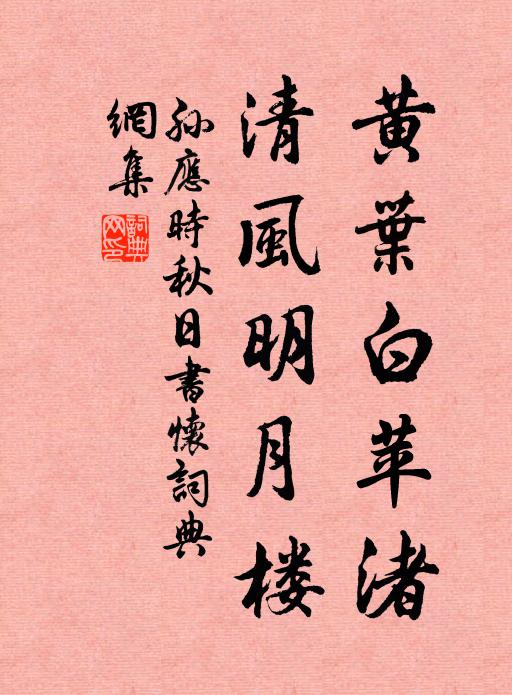 黄葉白苹渚
清風明月楼
孙應時秋日書懷詞典
網集
詞典
网印